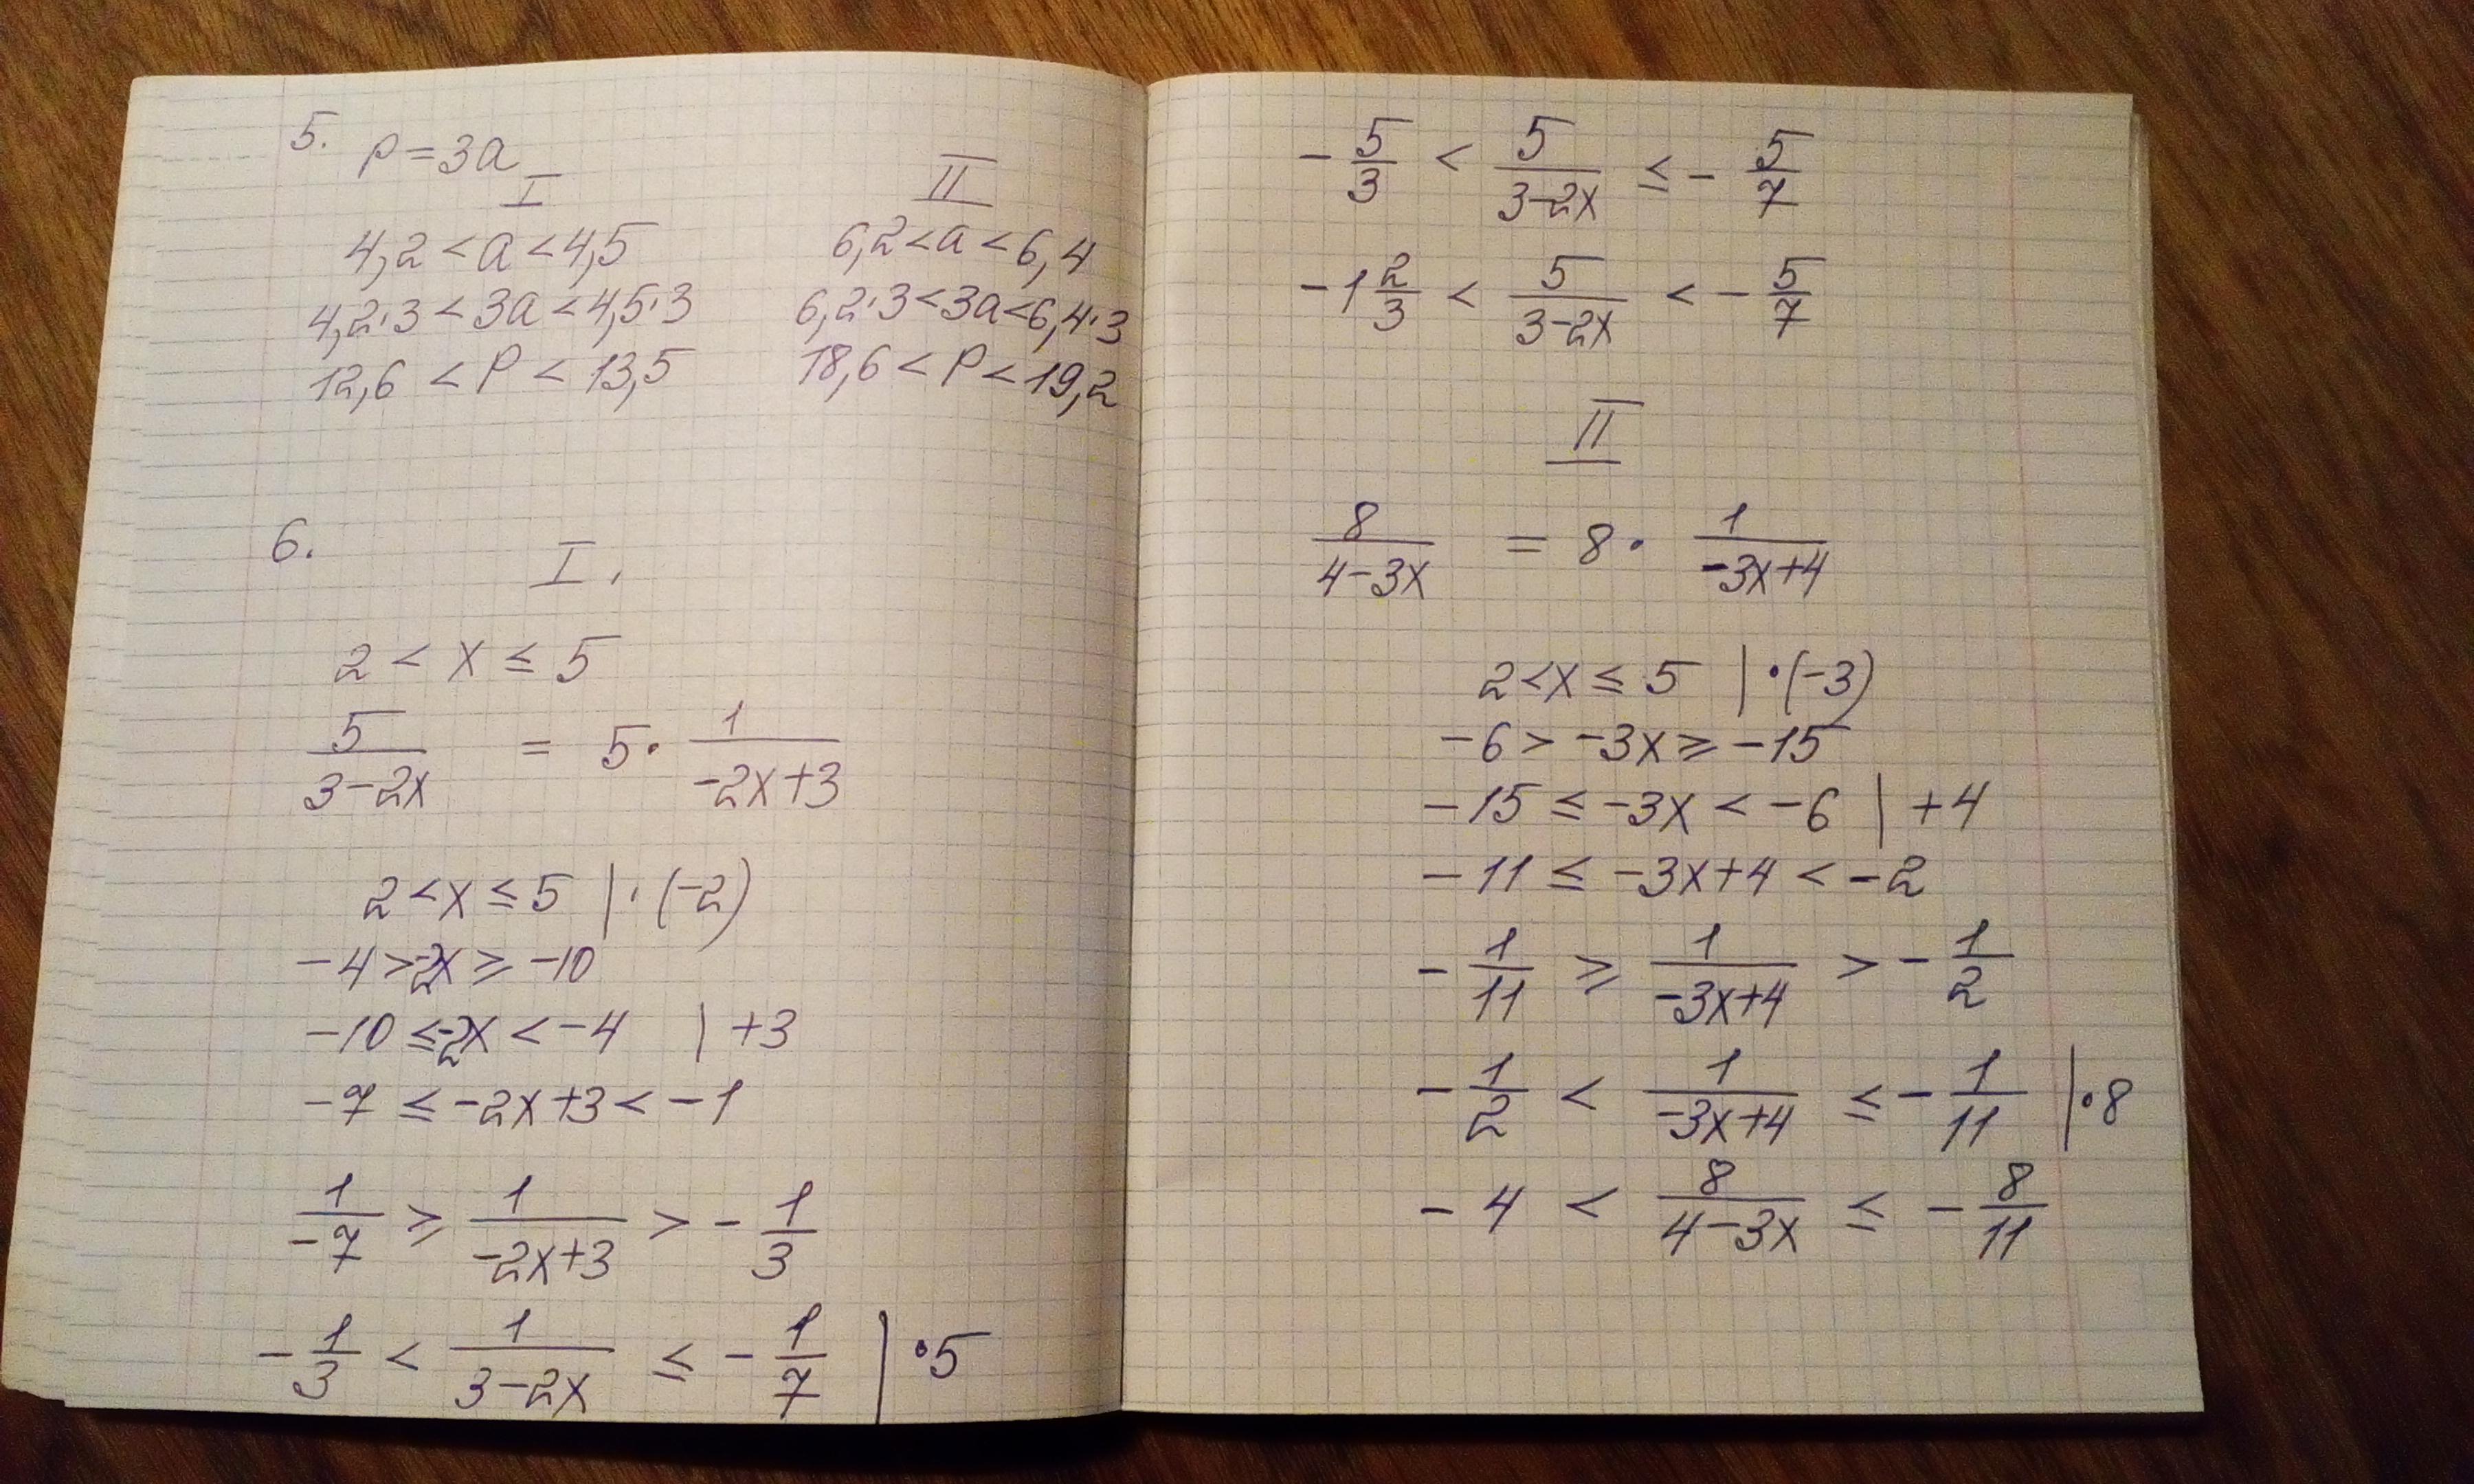 5. P=3a
I
4,2 < a < 4,5
4,2·3 < 3a < 4,5·3
12,6 < P < 13,5
II
6,2 < a < 6,4
6,2·3 < 3a < 6,4·3
18,6 < P < 19,2
6. I.
2 < x ≤ 5
5/(3-2x) = 5 · 1/(-2x+3)
2 < x ≤ 5 | · (-2)
-4 > -2x ≥ -10
-10 ≤ -2x < -4 | +3
-7 ≤ -2x+3 < -1
1/-7 ≥ 1/(-2x+3) > - 1/3
- 1/3 < 1/(3-2x) ≤ - 1/7 | · 5
- 5/3 < 5/(3-2x) ≤ - 5/7
-1 2/3 < 5/(3-2x) < - 5/7
II
8/(4-3x) = 8 · 1/(-3x+4)
2 < x ≤ 5 | · (-3)
-6 > -3x ≥ -15
-15 ≤ -3x < -6 | +4
-11 ≤ -3x+4 < -2
- 1/11 ≥ 1/(-3x+4) > - 1/2
- 1/2 < 1/(-3x+4) ≤ - 1/11 | · 8
-4 < 8/(4-3x) ≤ - 8/11